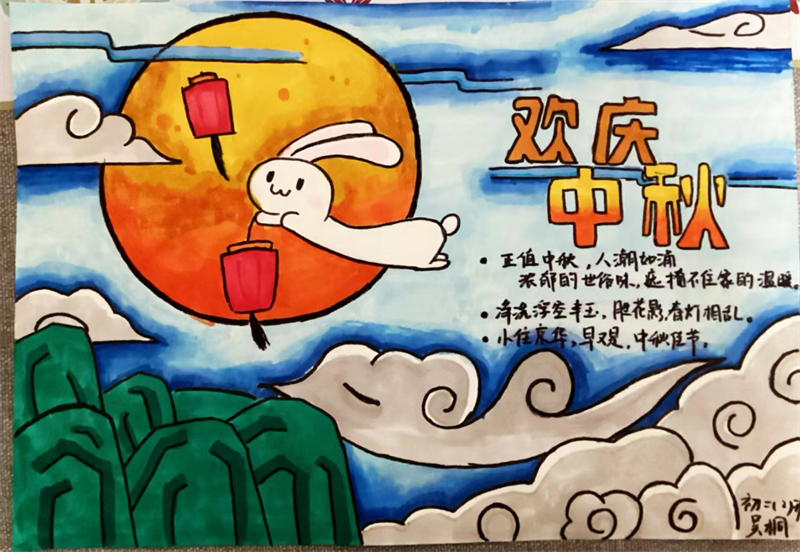 欢庆
中秋
• 正值中秋，人潮如涌
浓郁的世俗味，遮掩不住家的温暖。
• 净洗浮空半玉，眼花影，灯相乱。
• 小住京华，早又是，中秋佳节。
初二
吴桐